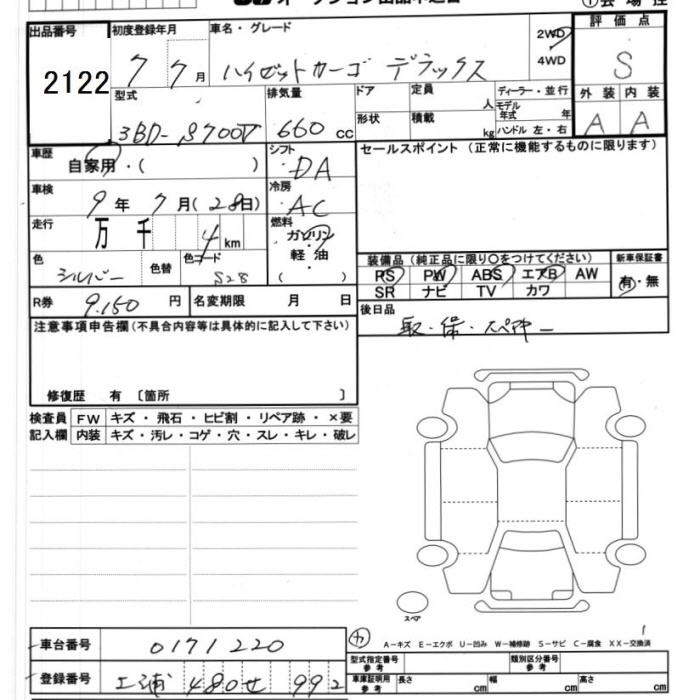 出品番号 初度登録年月 車名・グレード 2WD 4WD 評価点
2122 7 7月 ハイゼットカーゴ デラックス S
型式 排気量 ドア 定員 人 ディーラー・並行 外装 内装
3BD-S700V 660cc 形状 積載 kg モデル年式 年 ハンドル 左・右 A A
車歴 自家用・( ) シフト DA セールスポイント (正常に機能するものに限ります)
車検 9年 7月(28日) 冷房 AC
走行 万 千 4km 燃料 ガソリン・軽油・( )
色 シルバー 色替 色コード S28
装備品 (純正品に限り○をつけてください) 新車保証書
PS PW ABS エアB AW 有・無
SR ナビ TV カワ
R券 9,150円 名変期限 月 日
後日品 取・保・スペアキー
注意事項申告欄(不具合内容等は具体的に記入して下さい)
修復歴 有 〔箇所 〕
検査員 FW キズ・飛石・ヒビ割・リペア跡・×要
記入欄 内装 キズ・汚レ・コゲ・穴・スレ・キレ・破レ
スペア
車台番号 0171220
カ A-キズ E-エクボ U-凹み W-補修跡 S-サビ C-腐食 XX-交換済
1
型式指定番号 参考 類別区分番号 参考
登録番号 土浦 480せ 992
車庫証明用 参考 長さ cm 幅 cm 高さ cm